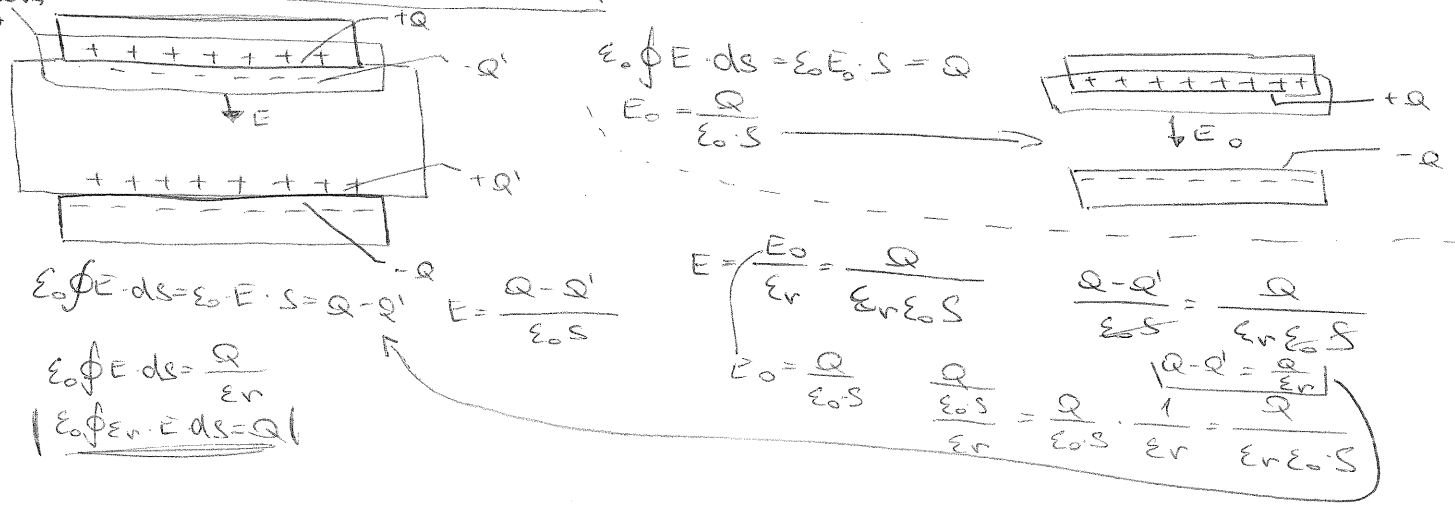 +Q
-Q'
E
+ + + + + + +
- - - - - - -
+ + + + + + +
+Q'
- - - - - - -
-Q
ε₀∮E·dS=ε₀·E·S=Q-Q' E=(Q-Q')/(ε₀S)
ε₀∮E·dS=Q/εr
|ε₀∮εr·E·dS=Q|
ε₀∮E·dS=ε₀E₀·S=Q
E₀=Q/(ε₀·S)
+ + + + + + + +
+Q
E₀
-Q
- - - - - - -
E=E₀/εr=Q/(εrε₀S)
(Q-Q')/(ε₀S)=Q/(εrε₀S)
Q-Q'=Q/εr
E₀=Q/(ε₀·S)
(Q/(ε₀·S))/εr=Q/(ε₀·S)·1/εr=Q/(εrε₀·S)